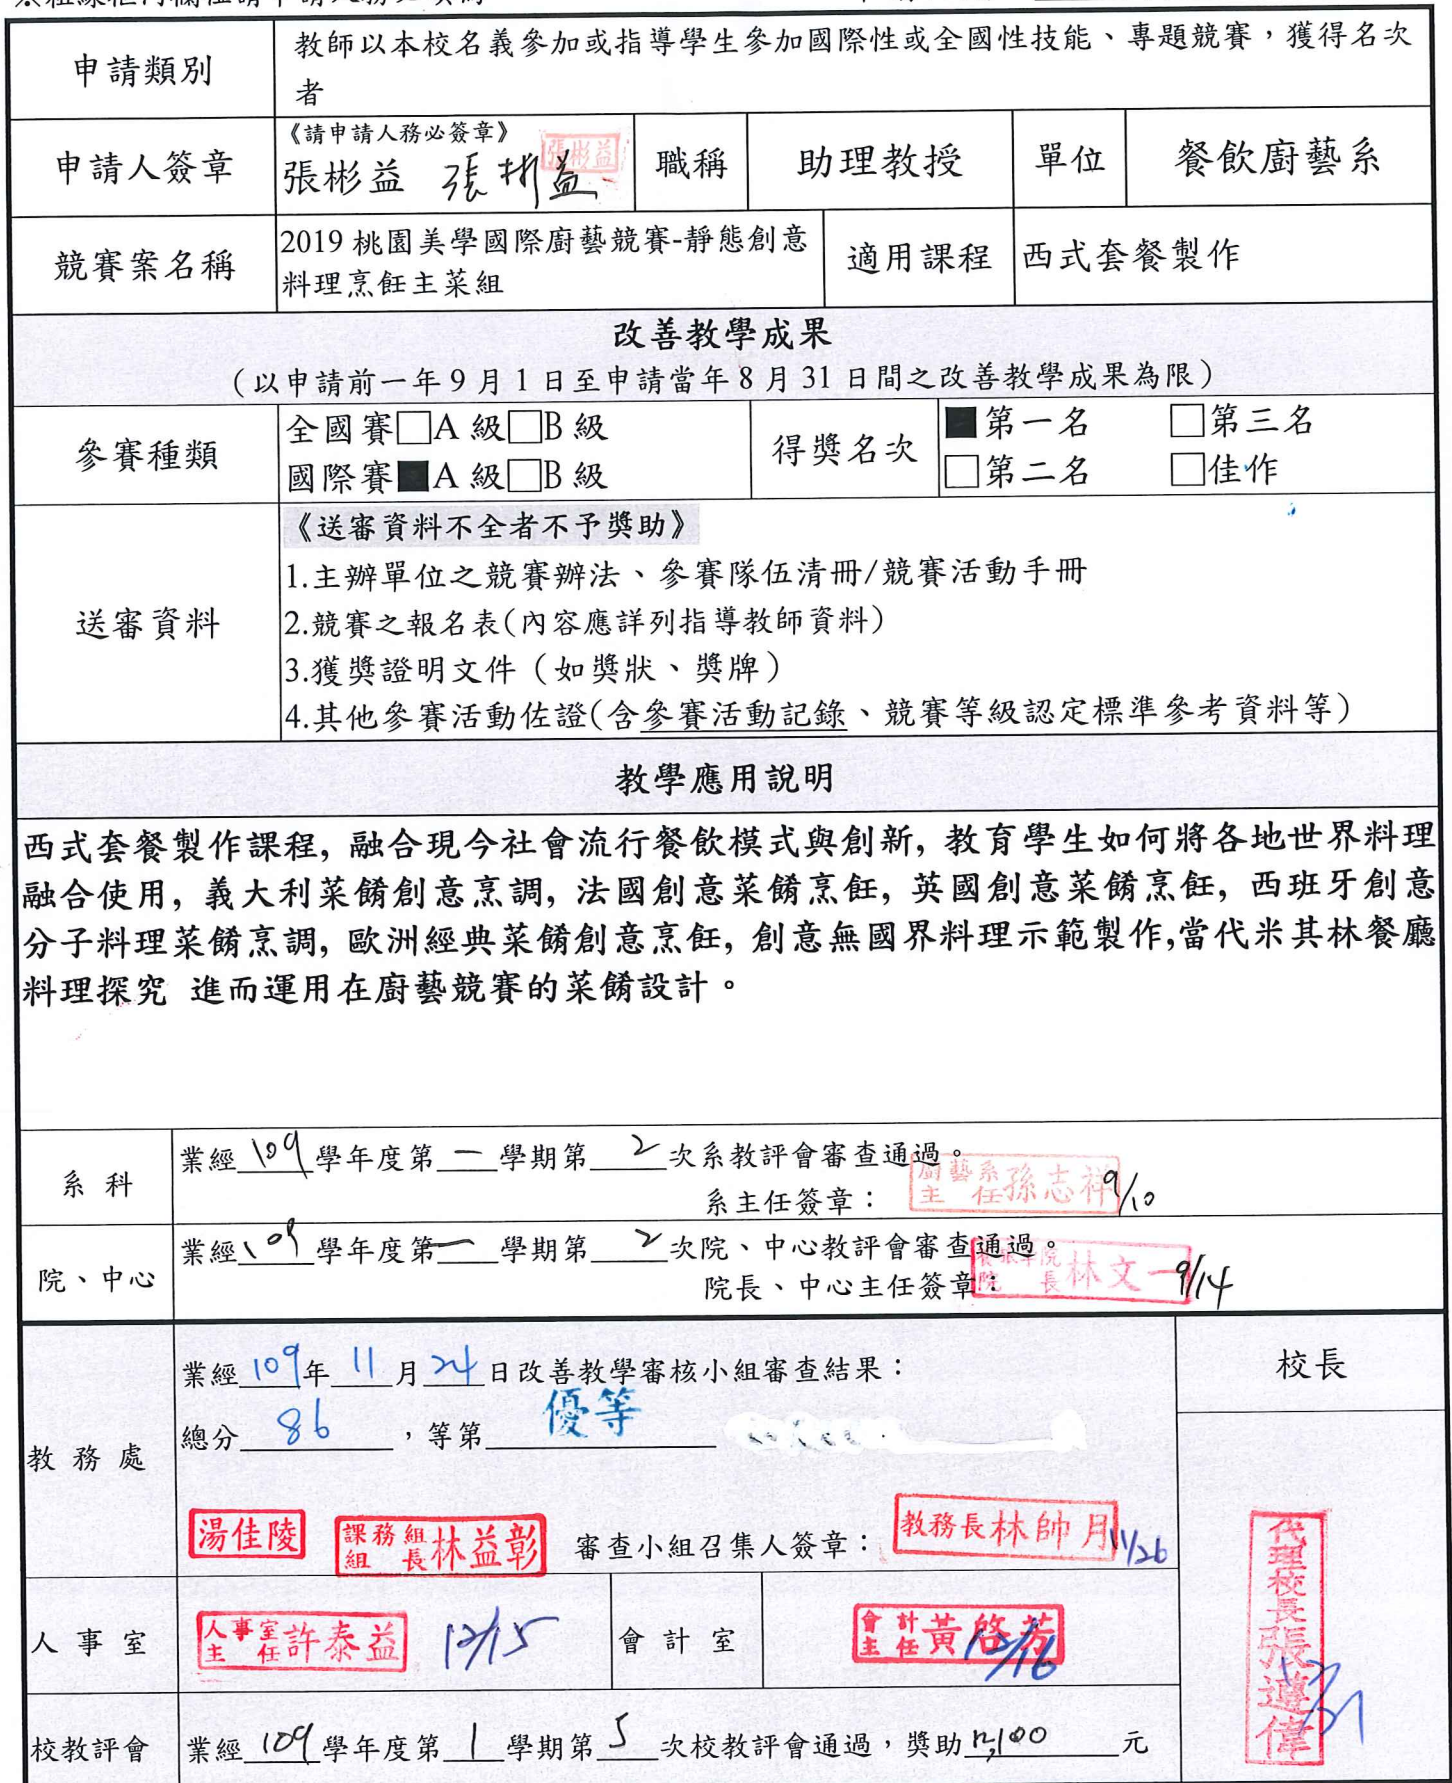 教師以本校名義參加或指導學生參加國際性或全國性技能、專題競賽，獲得名次
申請類別
者
《請申請人務必簽章》
申請人簽章 張彬益 張彬益 張彬益 職稱 助理教授 單位 餐飲廚藝系
競賽案名稱 2019桃園美學國際廚藝競賽-靜態創意 適用課程 西式套餐製作
料理烹飪主菜組
改善教學成果
（以申請前一年9月1日至申請當年8月31日間之改善教學成果為限）
參賽種類 全國賽□A級□B級 得獎名次 ■第一名 □第三名
國際賽■A級□B級 □第二名 □佳作
《送審資料不全者不予獎助》
1.主辦單位之競賽辦法、參賽隊伍清冊/競賽活動手冊
送審資料 2.競賽之報名表(內容應詳列指導教師資料)
3.獲獎證明文件（如獎狀、獎牌）
4.其他參賽活動佐證(含參賽活動記錄、競賽等級認定標準參考資料等)
教學應用說明
西式套餐製作課程, 融合現今社會流行餐飲模式與創新, 教育學生如何將各地世界料理
融合使用, 義大利菜餚創意烹調, 法國創意菜餚烹飪, 英國創意菜餚烹飪, 西班牙創意
分子料理菜餚烹調, 歐洲經典菜餚創意烹飪, 創意無國界料理示範製作,當代米其林餐廳
料理探究 進而運用在廚藝競賽的菜餚設計。
系科 業經109學年度第一學期第2次系教評會審查通過。
系主任簽章： 廚藝系主任孫志祥 9/10
院、中心 業經109學年度第一學期第2次院、中心教評會審查通過。
院長、中心主任簽章： 院長林文一 9/14
教務處 業經109年11月24日改善教學審核小組審查結果：
總分86，等第優等
湯佳陵 課務組組長林益彰 審查小組召集人簽章： 教務長林帥月 11/26
校長
代理校長張遵偉
人事室 人事室主任許泰益 12/15 會計室 會計主任黃啓芳 12/16
校教評會 業經109學年度第1學期第5次校教評會通過，獎助 元